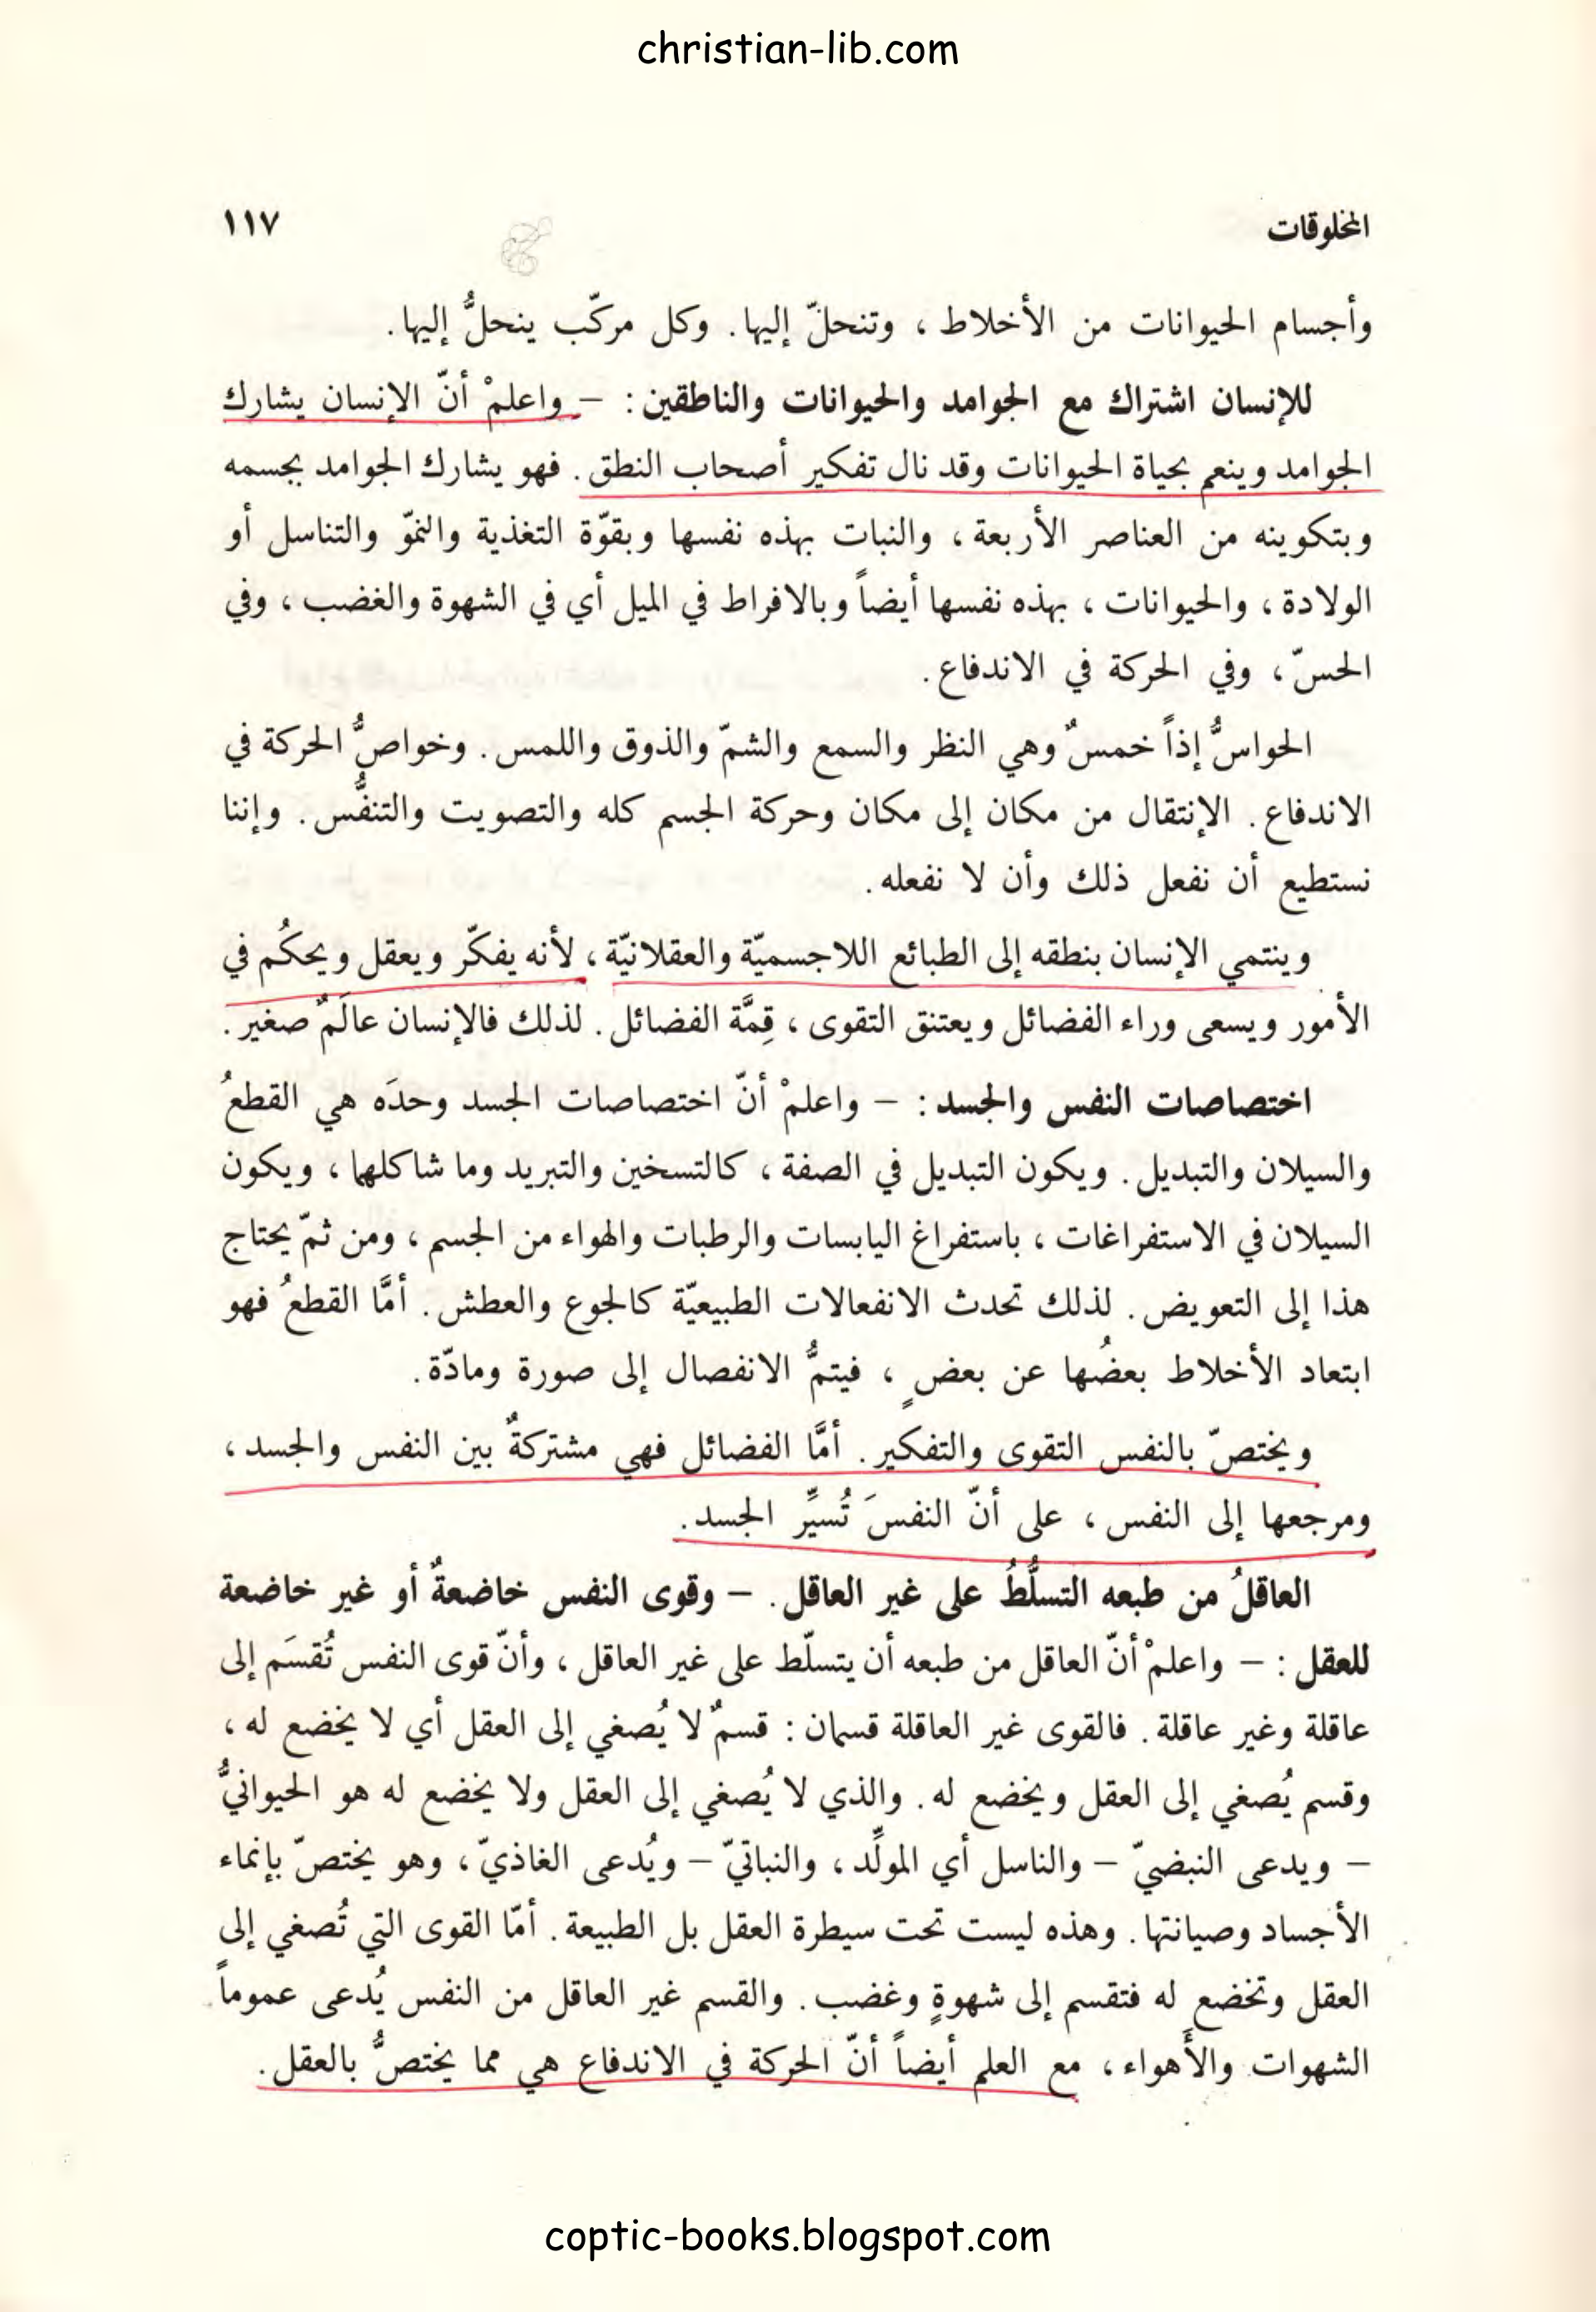 christian-lib.com
المخلوقات
١١٧
وأجسام الحيوانات من الأخلاط ، وتنحلّ إليها. وكل مركّب ينحلُّ إليها.
للإنسان اشتراك مع الجوامد والحيوانات والناطقين : – واعلمْ أنّ الإنسان يشارك
الجوامد وينعم بحياة الحيوانات وقد نال تفكير أصحاب النطق . فهو يشارك الجوامد بجسمه
وبتكوينه من العناصر الأربعة ، والنبات بهذه نفسها وبقوّة التغذية والنموّ والتناسل أو
الولادة ، والحيوانات ، بهذه نفسها أيضاً وبالافراط في الميل أي في الشهوة والغضب ، وفي
الحسّ ، وفي الحركة في الاندفاع .
الحواسُّ إذاً خمسٌ وهي النظر والسمع والشمّ والذوق واللمس . وخواصُّ الحركة في
الاندفاع . الإنتقال من مكان إلى مكان وحركة الجسم كله والتصويت والتنفُّس . وإننا
نستطيع أن نفعل ذلك وأن لا نفعله .
وينتمي الإنسان بنطقه إلى الطبائع اللاجسميّة والعقلانيّة ، لأنه يفكّر ويعقل ويحكُم في
الأمور ويسعى وراء الفضائل ويعتنق التقوى ، قِمَّة الفضائل . لذلك فالإنسان عالَمٌ صغير .
اختصاصات النفس والجسد : – واعلمْ أنّ اختصاصات الجسد وحدَه هي القطعُ
والسيلان والتبديل . ويكون التبديل في الصفة ، كالتسخين والتبريد وما شاكلهما ، ويكون
السيلان في الاستفراغات ، باستفراغ اليابسات والرطبات والهواء من الجسم ، ومن ثمّ يحتاج
هذا إلى التعويض . لذلك تحدث الانفعالات الطبيعيّة كالجوع والعطش . أمَّا القطعُ فهو
ابتعاد الأخلاط بعضُها عن بعضٍ ، فيتمُّ الانفصال إلى صورة ومادّة .
ويختصّ بالنفس التقوى والتفكير . أمَّا الفضائل فهي مشتركةٌ بين النفس والجسد ،
ومرجعها إلى النفس ، على أنّ النفسَ تُسيِّر الجسد .
العاقلُ من طبعه التسلُّطُ على غير العاقل . – وقوى النفس خاضعةٌ أو غير خاضعة
للعقل : – واعلمْ أنّ العاقل من طبعه أن يتسلّط على غير العاقل ، وأنّ قوى النفس تُقسَم إلى
عاقلة وغير عاقلة . فالقوى غير العاقلة قسمان : قسمٌ لا يُصغي إلى العقل أي لا يخضع له ،
وقسم يُصغي إلى العقل ويخضع له . والذي لا يُصغي إلى العقل ولا يخضع له هو الحيوانيُّ
– ويدعى النبضيّ – والناسل أي المولِّد ، والنباتيّ – ويُدعى الغاذيّ ، وهو يختصّ بإنماء
الأجساد وصيانتها . وهذه ليست تحت سيطرة العقل بل الطبيعة . أمّا القوى التي تُصغي إلى
العقل وتخضع له فتقسم إلى شهوةٍ وغضب . والقسم غير العاقل من النفس يُدعى عموماً
الشهوات والأَهواء ، مع العلم أيضاً أنّ الحركة في الاندفاع هي مما يختصُّ بالعقل .
coptic-books.blogspot.com